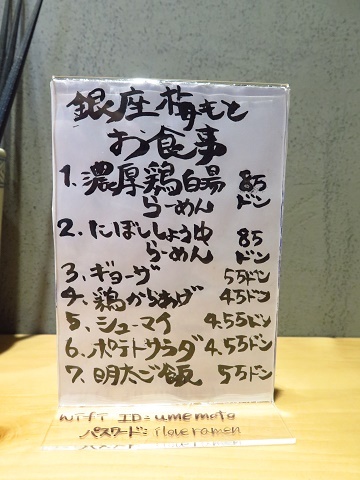 銀座梅もと
お食事
1. 濃厚鶏白湯
らーめん 85ドン
2. にぼししょうゆ
らーめん 85ドン
3. ギョーザ 55ドン
4. 鶏からあげ 45ドン
5. シューマイ 4.55ドン
6. ポテトサラダ 4.55ドン
7. 明太ご飯 55ドン
Wifi ID: umemoto
パスワード: iloveramen